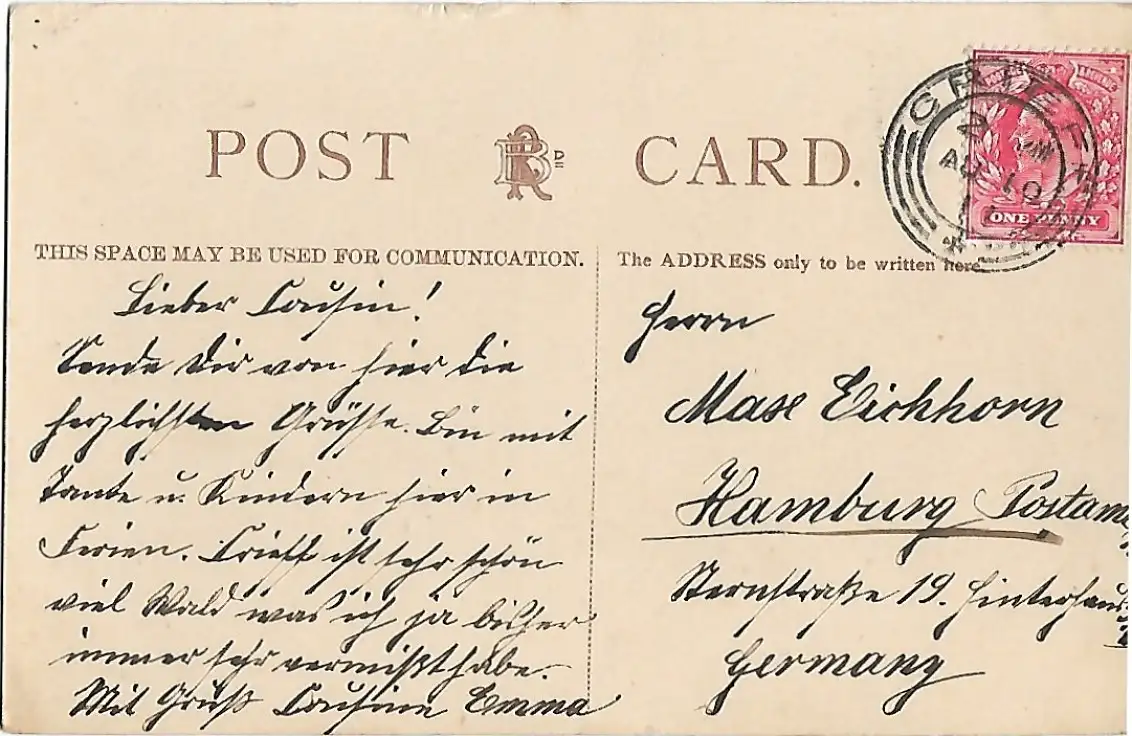 POST CARD.
CRIEFF
AU 10
11
ONE PENNY
THIS SPACE MAY BE USED FOR COMMUNICATION.
Lieber Cousin!
Sende Dir von hier die
herzlichsten Grüsse. Bin mit
Tante u. Kindern hier in
Ferien. Crieff ist sehr schön
viel Wald was ich ja bisher
immer sehr vermißt habe.
Mit Gruß Cousine Emma
The ADDRESS only to be written here
Herrn
Max Eichhorn
Hamburg Postamt
Sternstraße 19. Hinterhaus
Germany